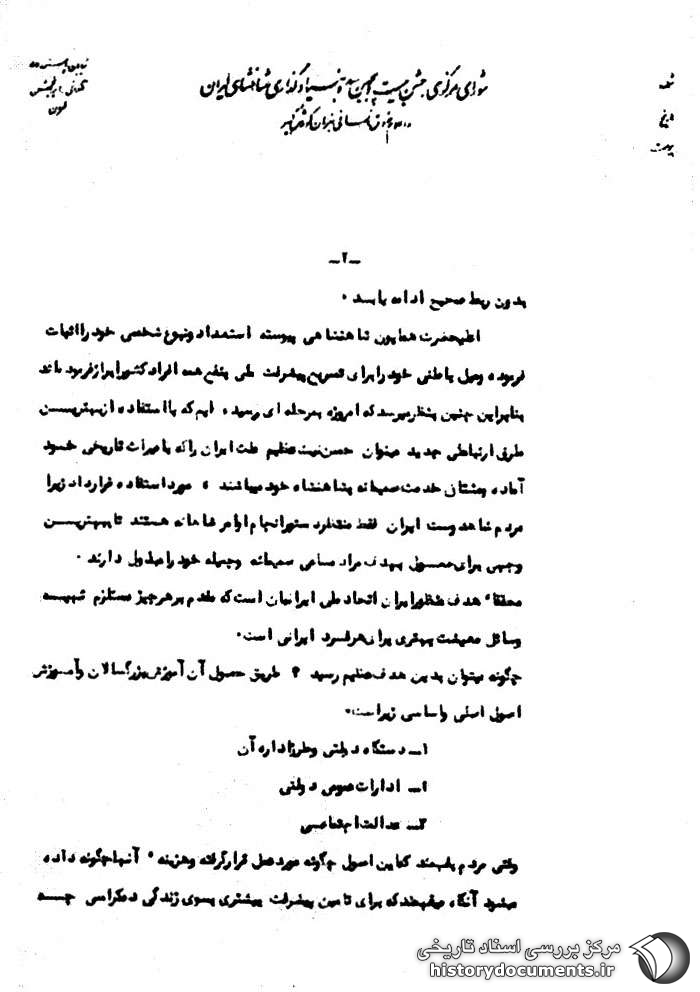 شورای مرکزی جشن بیست و پنجمین سده بنیاد گذاری شاهنشاهی ایران
شماره
تاریخ
پیوست
ـ۲ـ
بدون ربط صحیح ادامه یابد .
اعلیحضرت همایون شاهنشاهی پیوسته استعداد و نبوغ شخصی خود را اثبات
فرموده و میل باطنی خود را برای تسریع پیشرفت ملی بنفع همه افراد کشور ابراز فرموده‌اند
بنابراین چنین بنظر میرسد که امروزه بمرحله ای رسیده ایم که با استفاده از بهترین
طرق ارتباطی جدید میتوان حسن نیت عظیم ملت ایران را که با میراث تاریخی خود
آماده و مشتاق خدمت صمیمانه بشاهنشاه خود میباشند ، مورد استفاده قرار داد زیرا
مردم شاهدوست ایران فقط منتظر دستور انجام اوامر شاهانه هستند تا ببهترین
وجهی برای حصول بهدف مراد مساعی صمیمانه وجمیله خود را مبذول دارند .
محققاً هدف منظور ایران اتحاد ملی ایرانیان است که مقدم بر هر چیز مستلزم تهیه
وسائل معیشت بهتری برای هر فرد ایرانی است .
چگونه میتوان بدین هدف عظیم رسید ؟ طریق حصول آن آموزش بزرگسالان و آموزش
اصول اصلی و اساسی زیر است .
۱ـ دستگاه دولتی و طرز اداره آن
۲ـ ادارات عمومی دولتی
۳ـ عدالت اجتماعی
وقتی مردم بفهمند که این اصول چگونه مورد عمل قرار گرفته و هزینه آنها چگونه داده
میشود آنگاه میفهمند که برای تامین پیشرفت بیشتری بسوی زندگی دمکراسی چه
مرکز بررسی اسناد تاریخی
historydocuments.ir